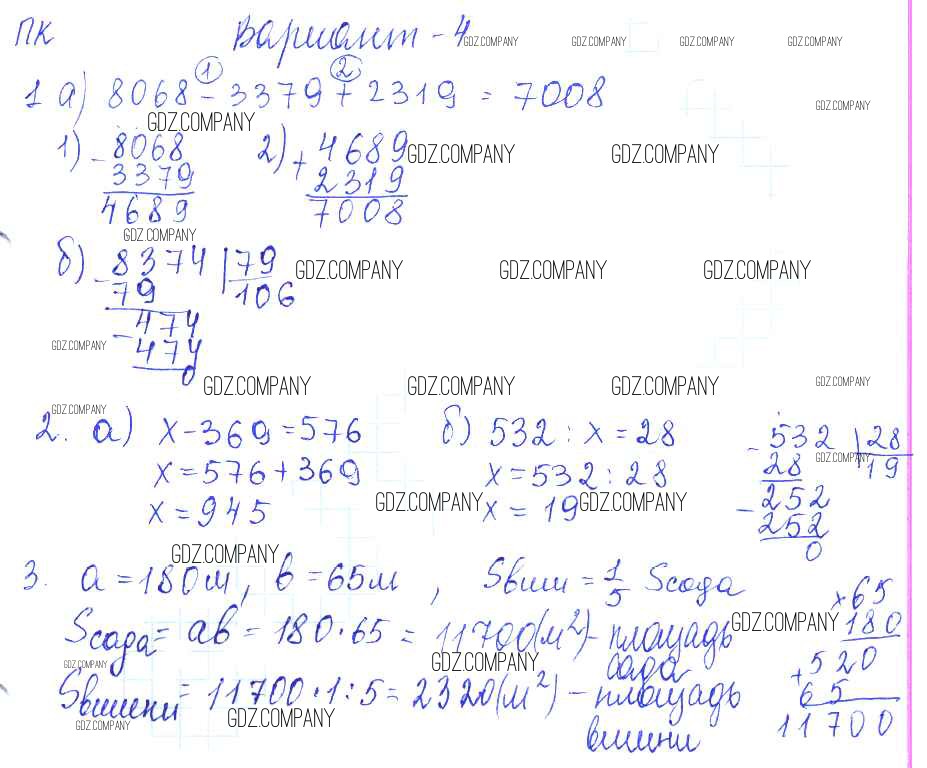 ПК Вариант - 4
GDZ.COMPANY GDZ.COMPANY GDZ.COMPANY GDZ.COMPANY
1 2
1 а) 8068 - 3379 + 2319 = 7008
GDZ.COMPANY
GDZ.COMPANY
1) - 8068 2) + 4689 GDZ.COMPANY GDZ.COMPANY
3379 2319
4689 7008
GDZ.COMPANY
б) - 8374 | 79 GDZ.COMPANY GDZ.COMPANY GDZ.COMPANY
79 106
- 474
GDZ.COMPANY 474
0 GDZ.COMPANY GDZ.COMPANY GDZ.COMPANY GDZ.COMPANY
GDZ.COMPANY
2. а) x - 369 = 576 б) 532 : x = 28 - 532 | 28
x = 576 + 369 x = 532 : 28 28 GDZ.COMPANY 19
x = 945 GDZ.COMPANY x = 19 GDZ.COMPANY - 252
252
GDZ.COMPANY 0
3. a = 180м, b = 65м, Sвиш = 1/5 Sсада × 65
Sсада = ab = 180·65 = 11700(м²) - площадь GDZ.COMPANY 180
GDZ.COMPANY GDZ.COMPANY сада + 520
Sвишни = 11700·1:5 = 2320(м²) - площадь 65
GDZ.COMPANY GDZ.COMPANY вишни 11700